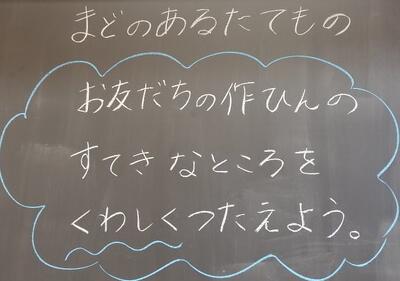 まどのあるたてもの
お友だちの作ひんの
すてきなところを
くわしくつたえよう。